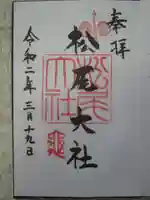 奉拝
松尾大社
令和二年三月十九日